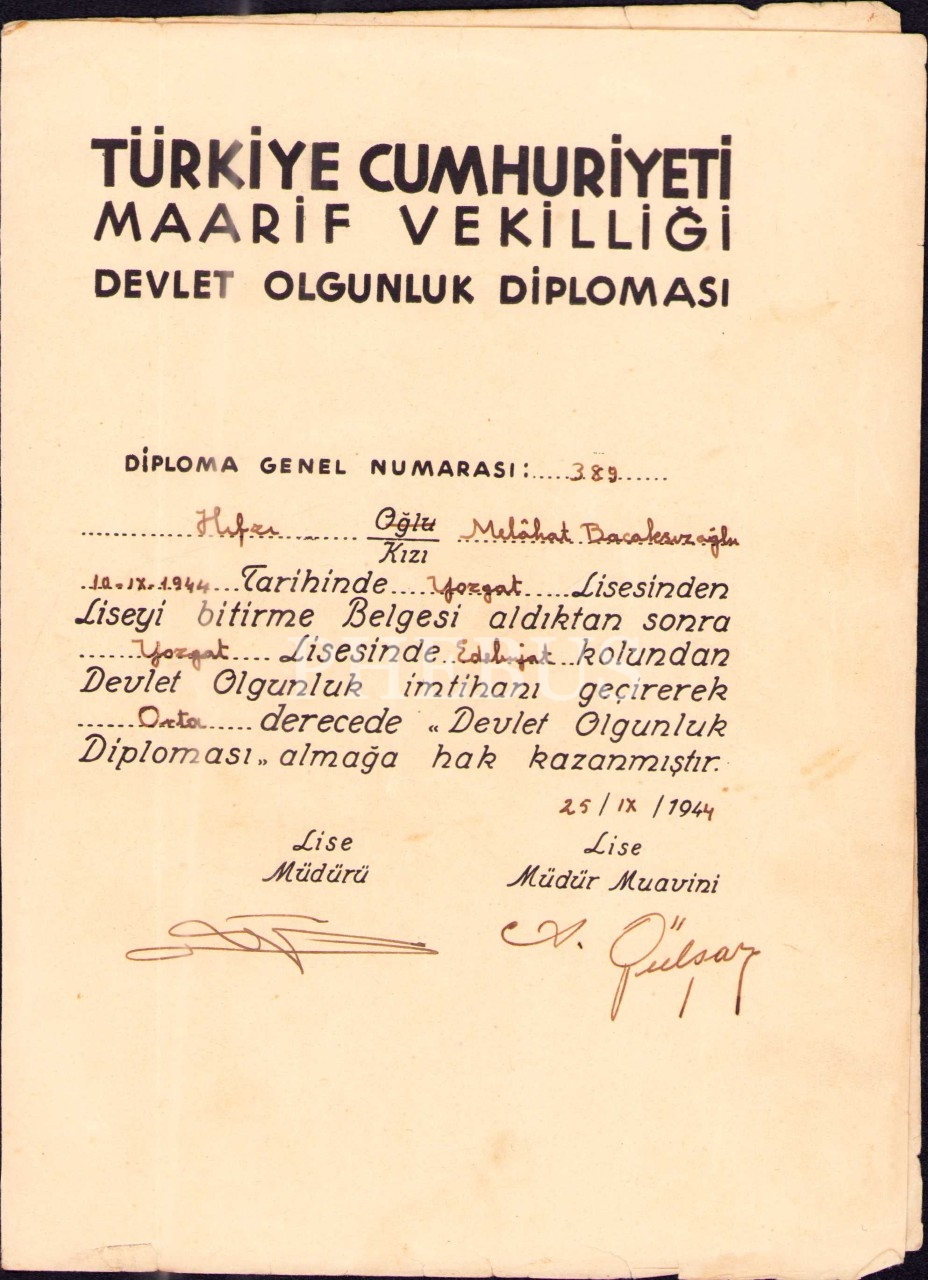 TÜRKİYE CUMHURİYETİ
MAARİF VEKİLLİĞİ
DEVLET OLGUNLUK DİPLOMASI
DİPLOMA GENEL NUMARASI: 389
Hıfzı Oğlu Melâhat Bacaksızoğlu
Kızı
10-IX-1944 Tarihinde Yozgat Lisesinden
Liseyi bitirme Belgesi aldıktan sonra
Yozgat Lisesinde Edebiyat kolundan
Devlet Olgunluk imtihanı geçirerek
Orta derecede «Devlet Olgunluk
Diploması» almağa hak kazanmıştır.
25/IX/1944
Lise Lise
Müdürü Müdür Muavini
PHEBUS